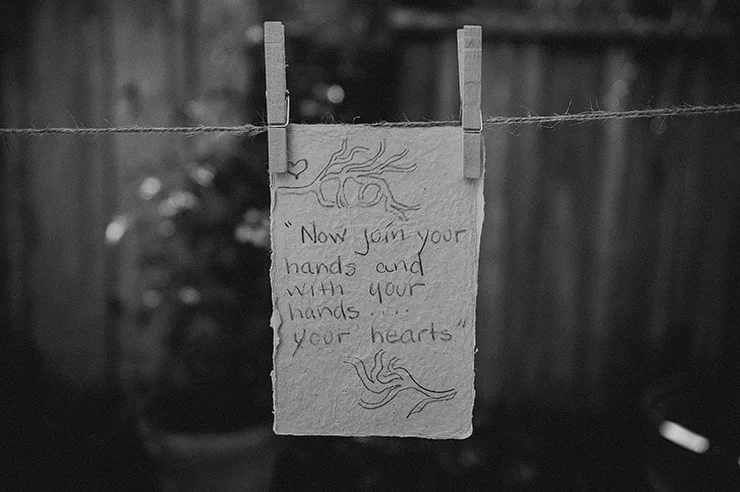 "Now join your
hands and
with your
hands....
your hearts"